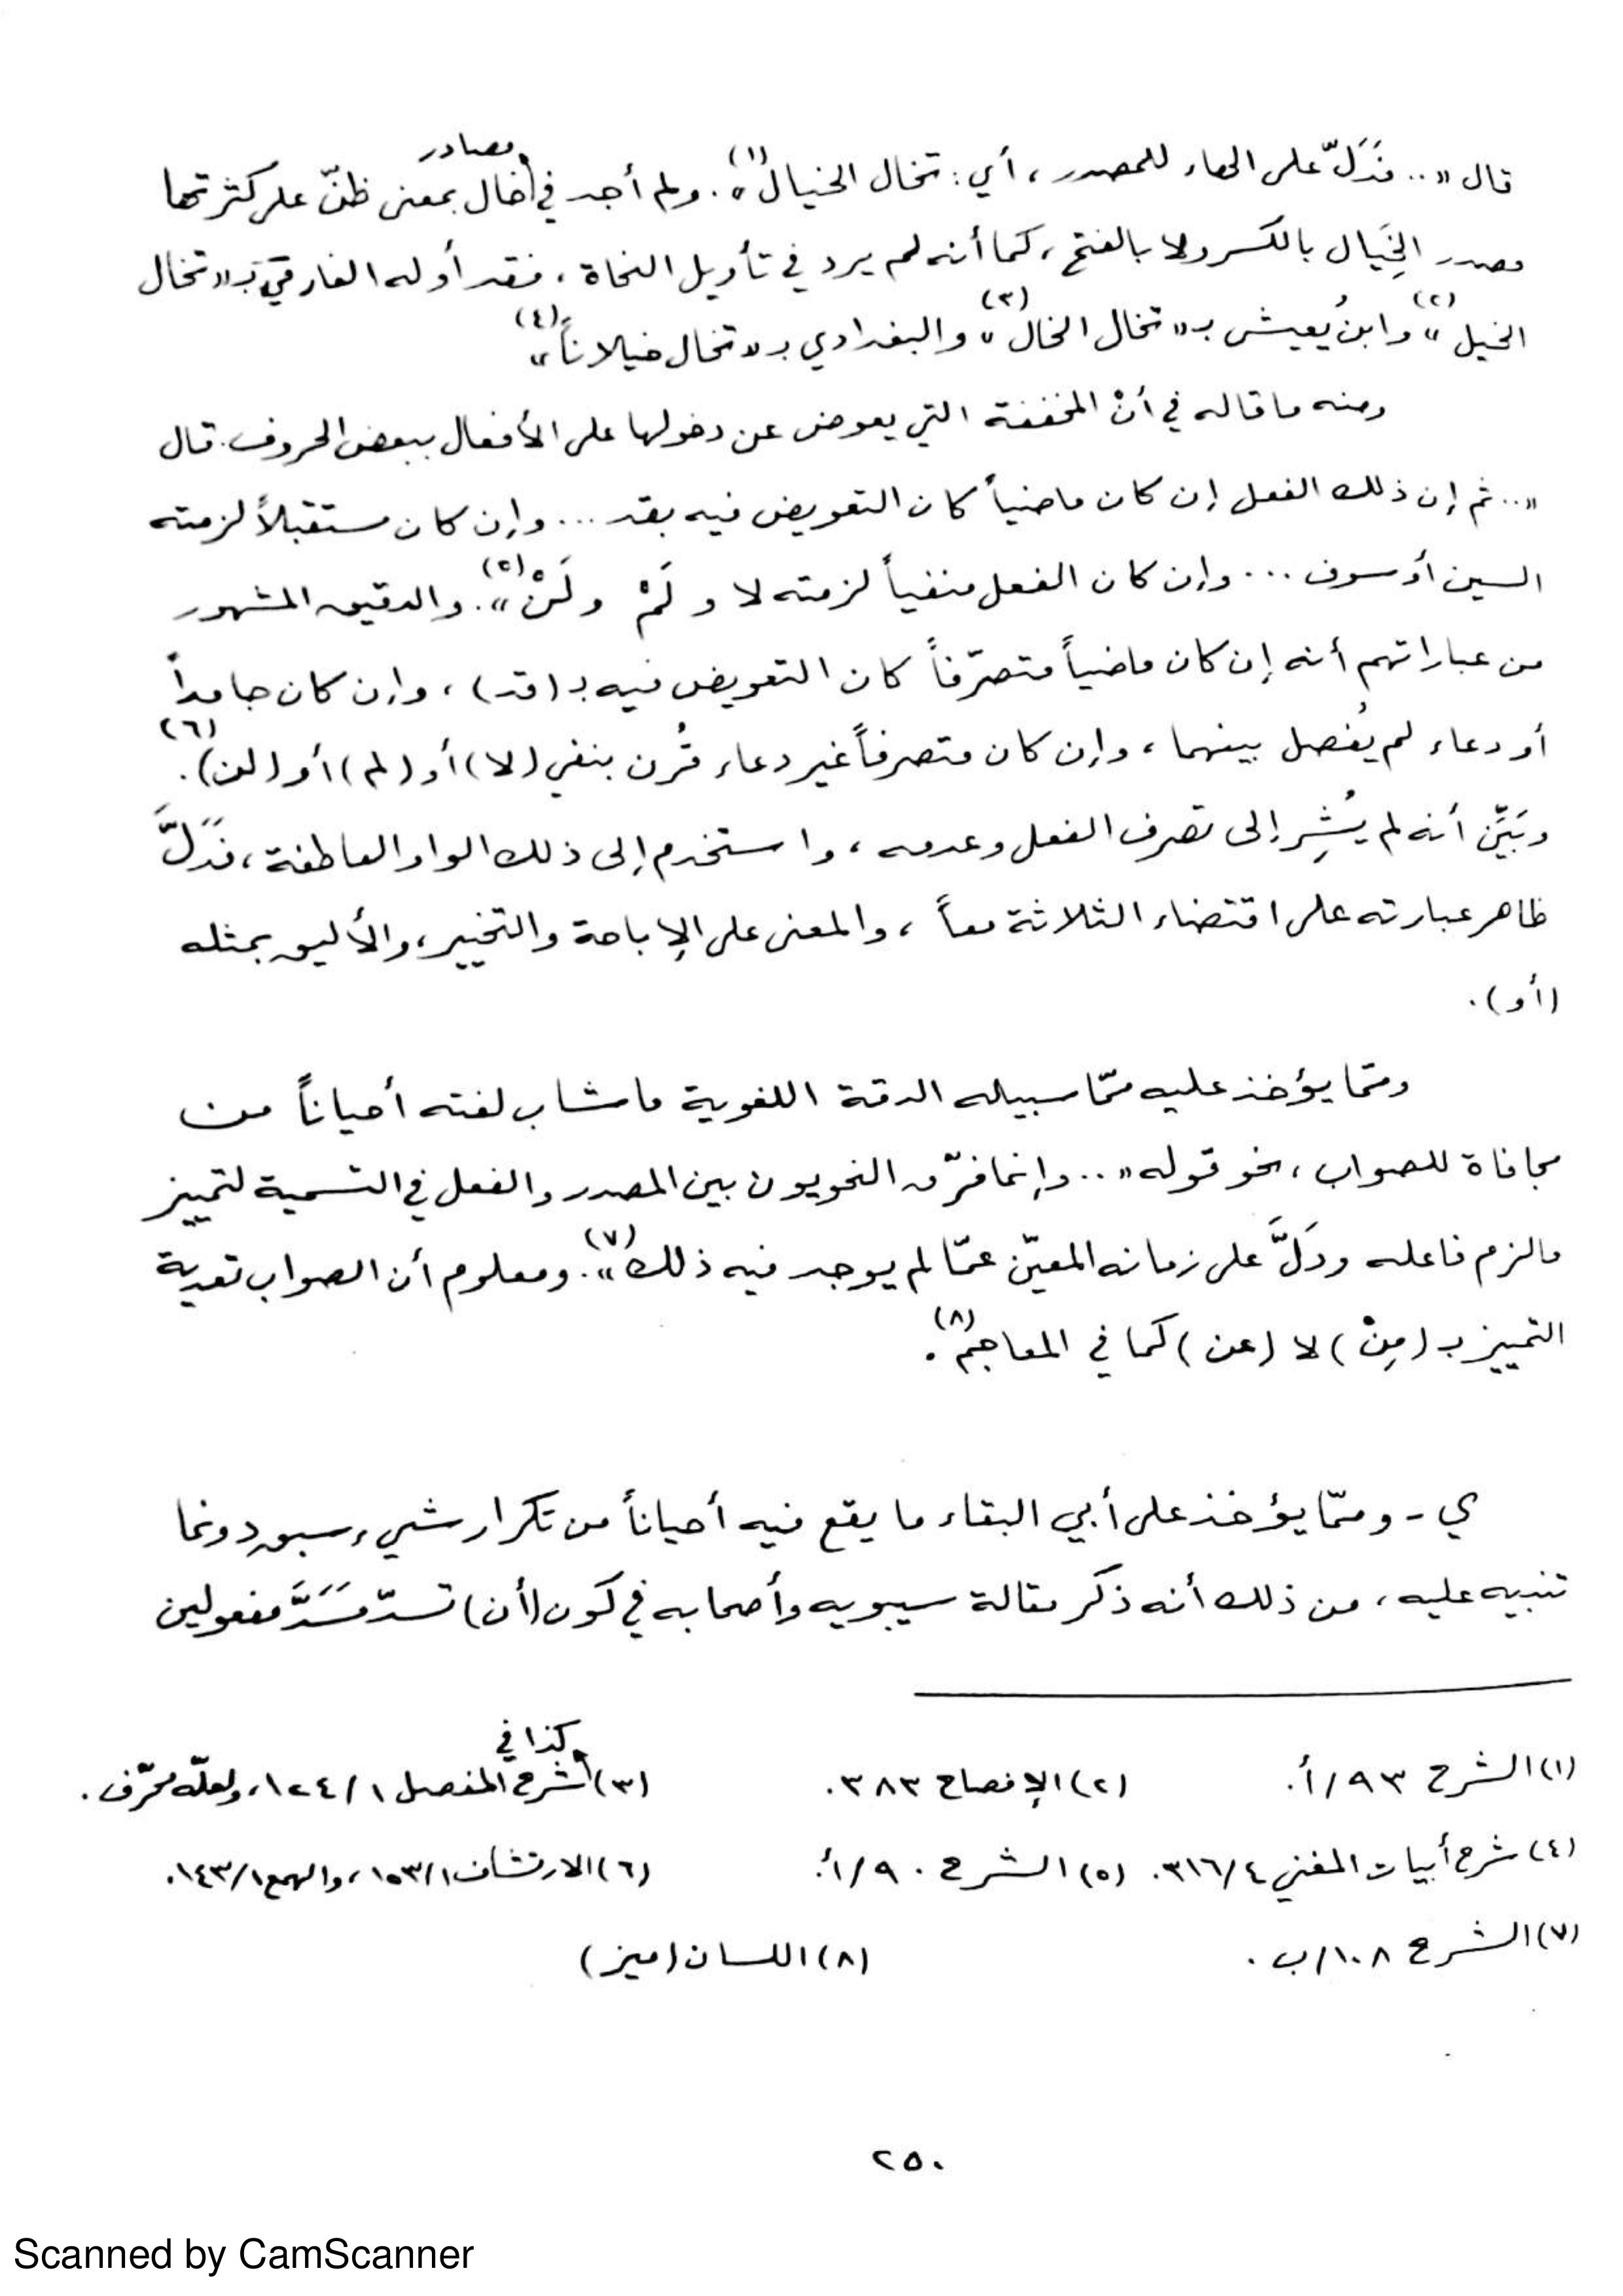 قال «.. فَدَلّ على الهاء للمصدر، أي: تخال الخيال»(١). ولم أجد في مصادر خال بمعنى ظنّ على كثرتها
مصدر الخِيَال بالكسر ولا بالفتح، كما أنه لم يرد في تأويل النحاة، فقد أوله الفارقيّ بـ «تخال
الخيل»(٢) وابنُ يُعيش بـ «تخال الخال»(٣) والبغدادي بـ «تخال خيلاناً»(٤)
ومنه ما قاله في أنْ المخففة التي يعوض عن دخولها على الأفعال ببعض الحروف. قال
«.. ثم إن ذلك الفعل إن كان ماضياً كان التعويض فيه بقد ... وإن كان مستقبلاً لزمته
السين أو سوف ... وإن كان الفعل منفياً لزمته لا و لَمْ ولَنْ»(٥). والدقيق المشهور
من عباراتهم أنه إن كان ماضياً متصرّفاً كان التعويض فيه بـ (قد)، وإن كان جامداً
أو دعاء لم يُفصل بينهما، وإن كان متصرفاً غير دعاء قُرن بنفي (لا) أو (لم) أو (لن)(٦).
وبَيِّن أنه لم يُشِر إلى تصرف الفعل وعدمه، واستخدم إلى ذلك الواو العاطفة، فَدَلَّ
ظاهر عبارته على اقتضاء الثلاثة معاً، والمعنى على الإباحة والتخيير، والأليق بمثله
(أو).
وممّا يؤخذ عليه ممّا سبيله الدقة اللغوية ما شاب لغته أحياناً من
مجافاة للصواب، نحو قوله «.. وإنما فرّق النحويون بين المصدر والفعل في التسمية لتمييز
ما لزم فاعله ودَلَّ على زمانه المعيّن عمّا لم يوجد فيه ذلك»(٧). ومعلوم أن الصواب تعدية
التمييز بـ (مِنْ) لا (عن) كما في المعاجم(٨).
ي - وممّا يؤخذ على أبي البقاء ما يقع فيه أحياناً من تكرار شيء سبق دونما
تنبيه عليه، من ذلك أنه ذكر مقالة سيبويه وأصحابه في كون (أن) تسدّ مَسَدَّ مفعولين
(١) الشرح ٩٣/أ. (٢) الإفصاح ٣٨٣. (٣) كذا في شرح المفصل ١٢٤/١، ولعلّه محرّف.
(٤) شرح أبيات المغني ٣١٦/٤. (٥) الشرح ٩٠/أ. (٦) الارتشاف ١٥٣/١، والهمع ١٤٣/١.
(٧) الشرح ١٠٨/ب. (٨) اللسان (ميز)
٢٥٠
Scanned by CamScanner